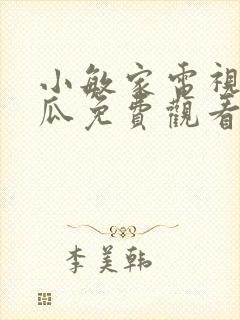 小敏家電視
瓜免費觀看
李美韩